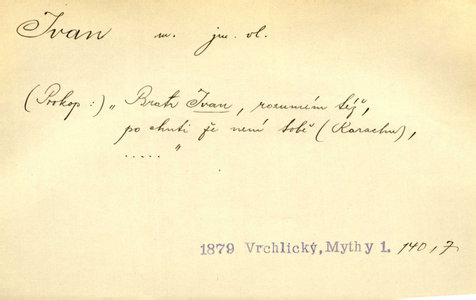 Ivan m. jm. vl.
(Prokop:) „Bratr Ivan, rozumím též,
po chuti že není tobě (Karachu),
....."
1879 Vrchlický, Mythy 1. 140, 7